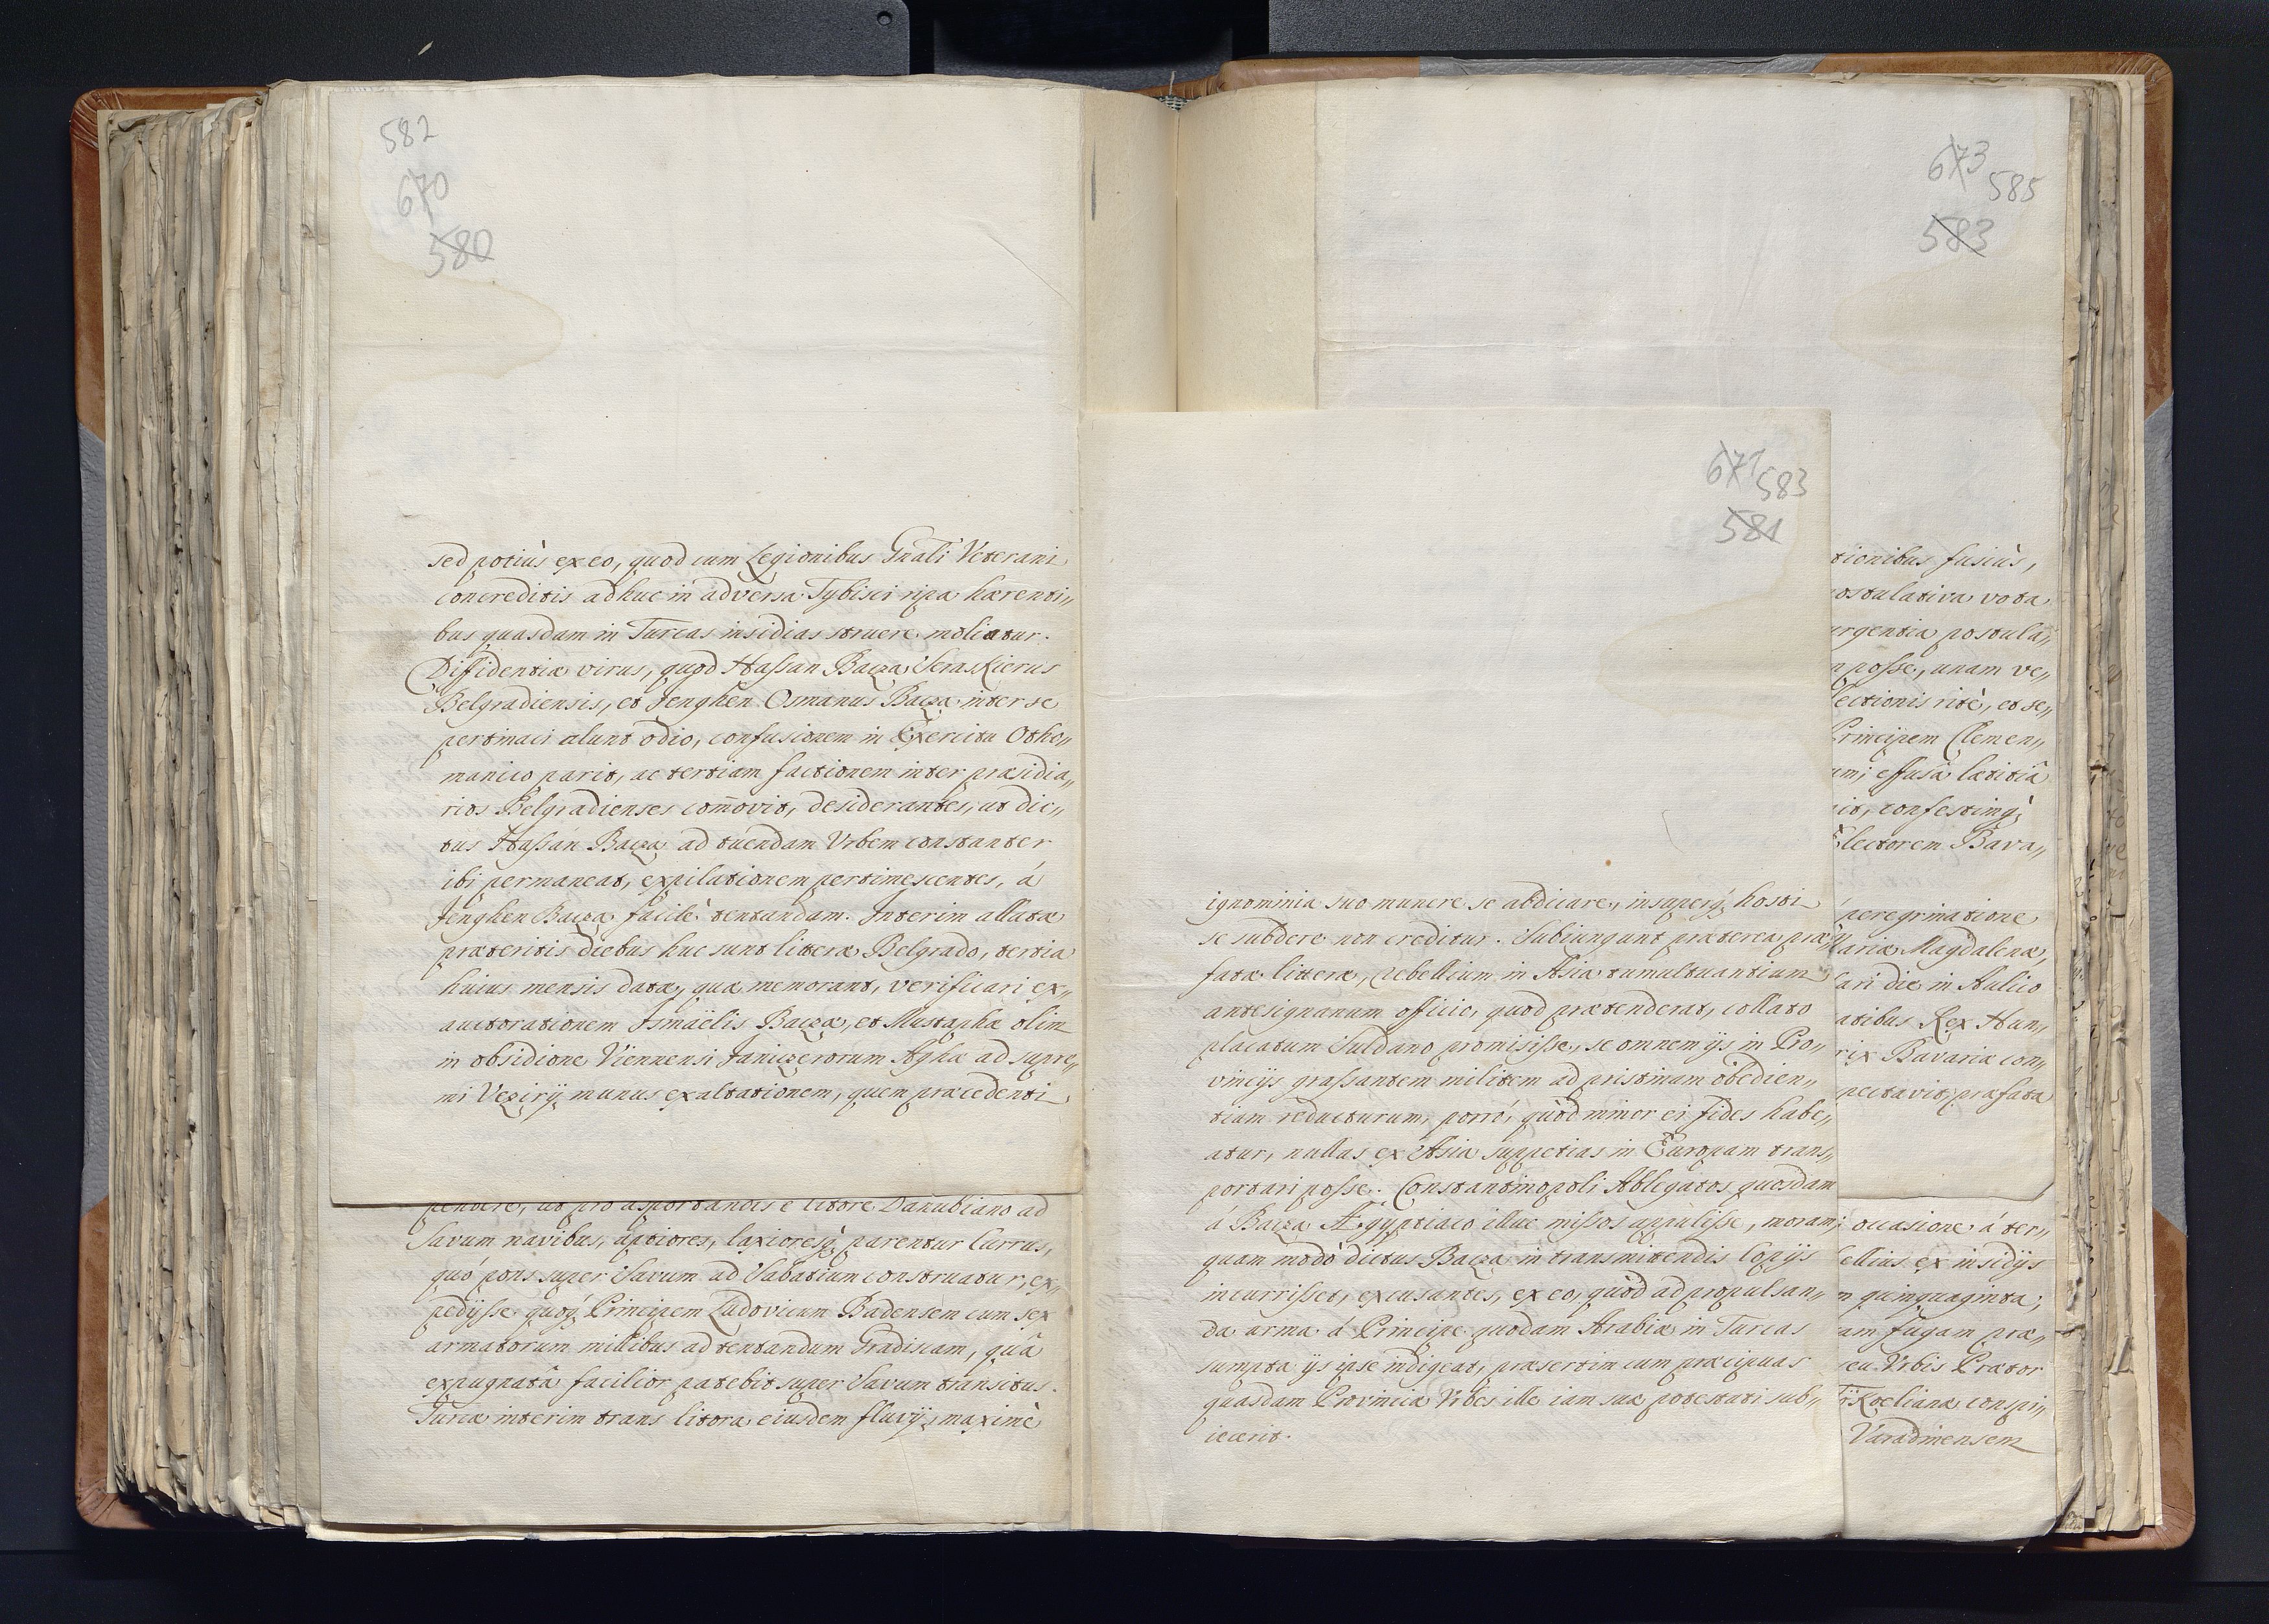 582
670
580
sed potiùs ex eo, quod cum Legionibus Gñali Veterani
concreditis adhuc in adversa Tybisci ripa hærenti„
bus quasdam in Turcas insidias struere moliatur.
Diffidentiæ virus, quod Hassan Bacza Seraskierus
Belgradiensis, et Jenghen Osmanus Bacza inter se
pertinaci alunt odio, confusionem in Exercitu Otho„
manico parit, ac tertiam factionem inter præsidia„
rios Belgradienses com̃ovit, desiderantes, ut dic„
tus Hassan Bacza ad tuendam Vrbem constanter
ibi permaneat, expilationem pertimescentes, á
Jenghen Bacza facilè tentandam. Interim allatæ
præteritis diebus huc sunt litteræ Belgrado, tertia
huius mensis datæ, quæ memorant, verificari ex„
auctorationem Ismäelis Bacza, et Mustaphæ olim
in obsidione Viennensi Janiczerorum Aghæ ad supre„
mi Vezirÿ munus exaltationem, quem præcedenti
pendere, ut pro asportandis è litore Danubiano ad
Savum navibus, aptiores, laxioresq́ parentur Currus,
quó pons super Savum ad Sabatium construatur, ex„
pedÿsse quoq́ Principem Ludovicum Badensem cum sex
armatorum millibus ad tentandum Gradiscam, quâ
expugnatâ facilior patebit super Savum transitus.
Turcæ interim trans litora eiusdem fluvÿ, maximè
671 583
581
ignominia suo munere se abdicare, insuperq́ hosti
se subdere non creditur. Subiungunt præterea præ„
fatæ litteræ, rebellium in Asia tumultuantium
antesignanum officio, quod prætenderat, collato
placatum Suldano promisisse, se omnem ÿs in Pro„
vincÿs grassantem militem ad pristinam obedien„
tiam reducturum, porró, quòd minor ei fides habe„
atur, nullas ex Asia suppetias in Europam trans„
portari posse. Constantinopoli Ablegatos quosdam
á Bacza Ægyptiaco illuc missos appulisse, moram,
quam modò dictus Bacza in transmittendis Copÿs
incurrisset, excusantes, ex eo, quòd ad propulsan„
da arma á Principe quodam Arabiæ in Turcas
sumpta ÿs ipse indigeat, præsertim cum præcipuas
quasdam Provinciæ Vrbes ille iam suæ potestati sub„
iecerit.
673
585
583
tionibus fusiùs,
ostulativa vota
urgentia postula„
posse, unam ve„
lectionis ritè, et se„
Principem Clemen„
effusâ lætitiâ
it, confestimq́
Electorem Bava„
peregrinatione
Mariæ Magdalenæ,
ari die in Aulico
atibus Rex Hun„
Bavariæ con„
pectavit, præfata
occasione á ter„
ellius ex insidÿs
quinquaginta,
am fugam præ„
seu Vrbis Prætor
koeliana conspi„
Varadinensem